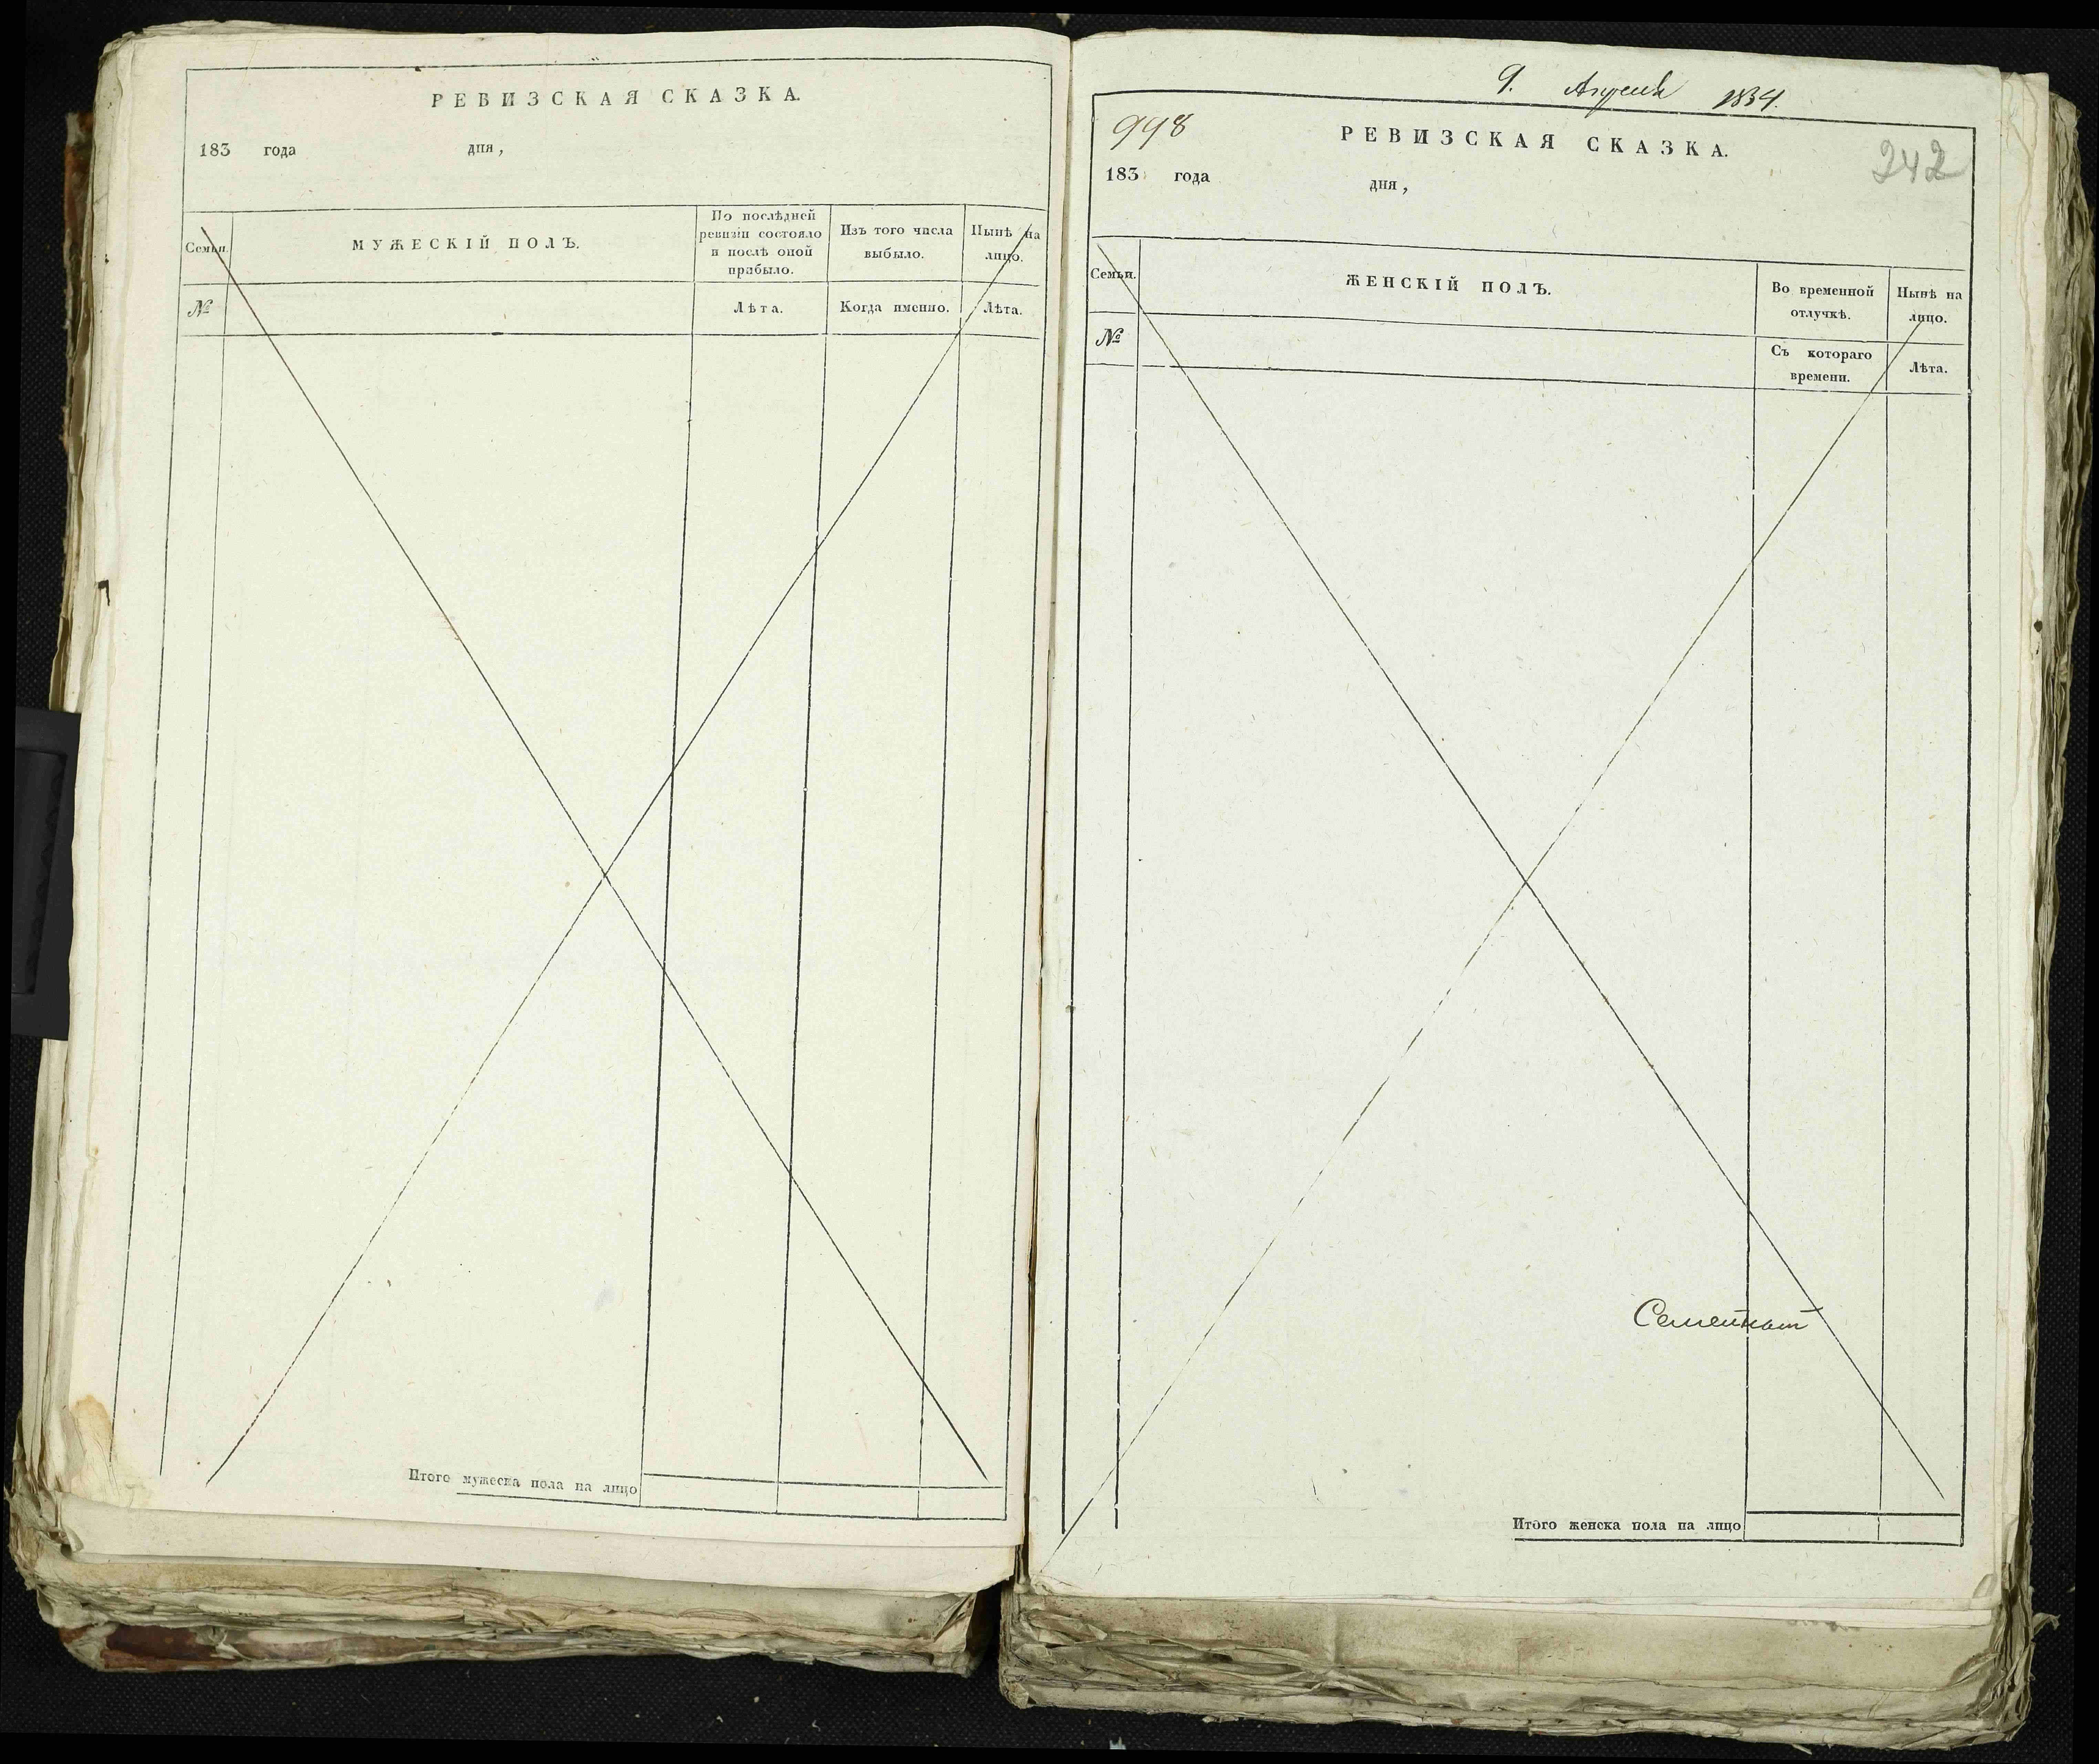 РЕВИЗСКАЯ СКАЗКА.
183 года дня,
Семьи.
МУЖЕСКІЙ ПОЛЪ.
По послѣдней ревизіи состояло и послѣ оной прибыло.
Изъ того числа выбыло.
Нынѣ на лицо.
№
Лѣта.
Когда именно.
Лѣта.
Итого мужеска пола на лицо
9. Апреля 1834.
998
РЕВИЗСКАЯ СКАЗКА.
242
183 года дня,
Семьи.
ЖЕНСКІЙ ПОЛЪ.
Во временной отлучкѣ.
Нынѣ на лицо.
№
Съ котораго времени.
Лѣта.
Итого женска пола на лицо